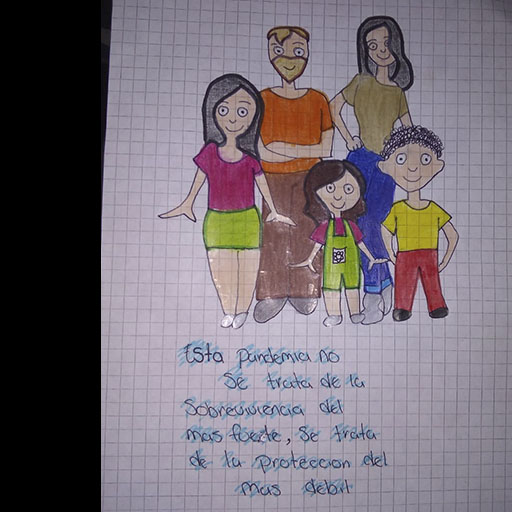 Esta pandemia no
se trata de la
sobrevivencia del
mas fuerte, se trata
de la proteccion del
mas debil